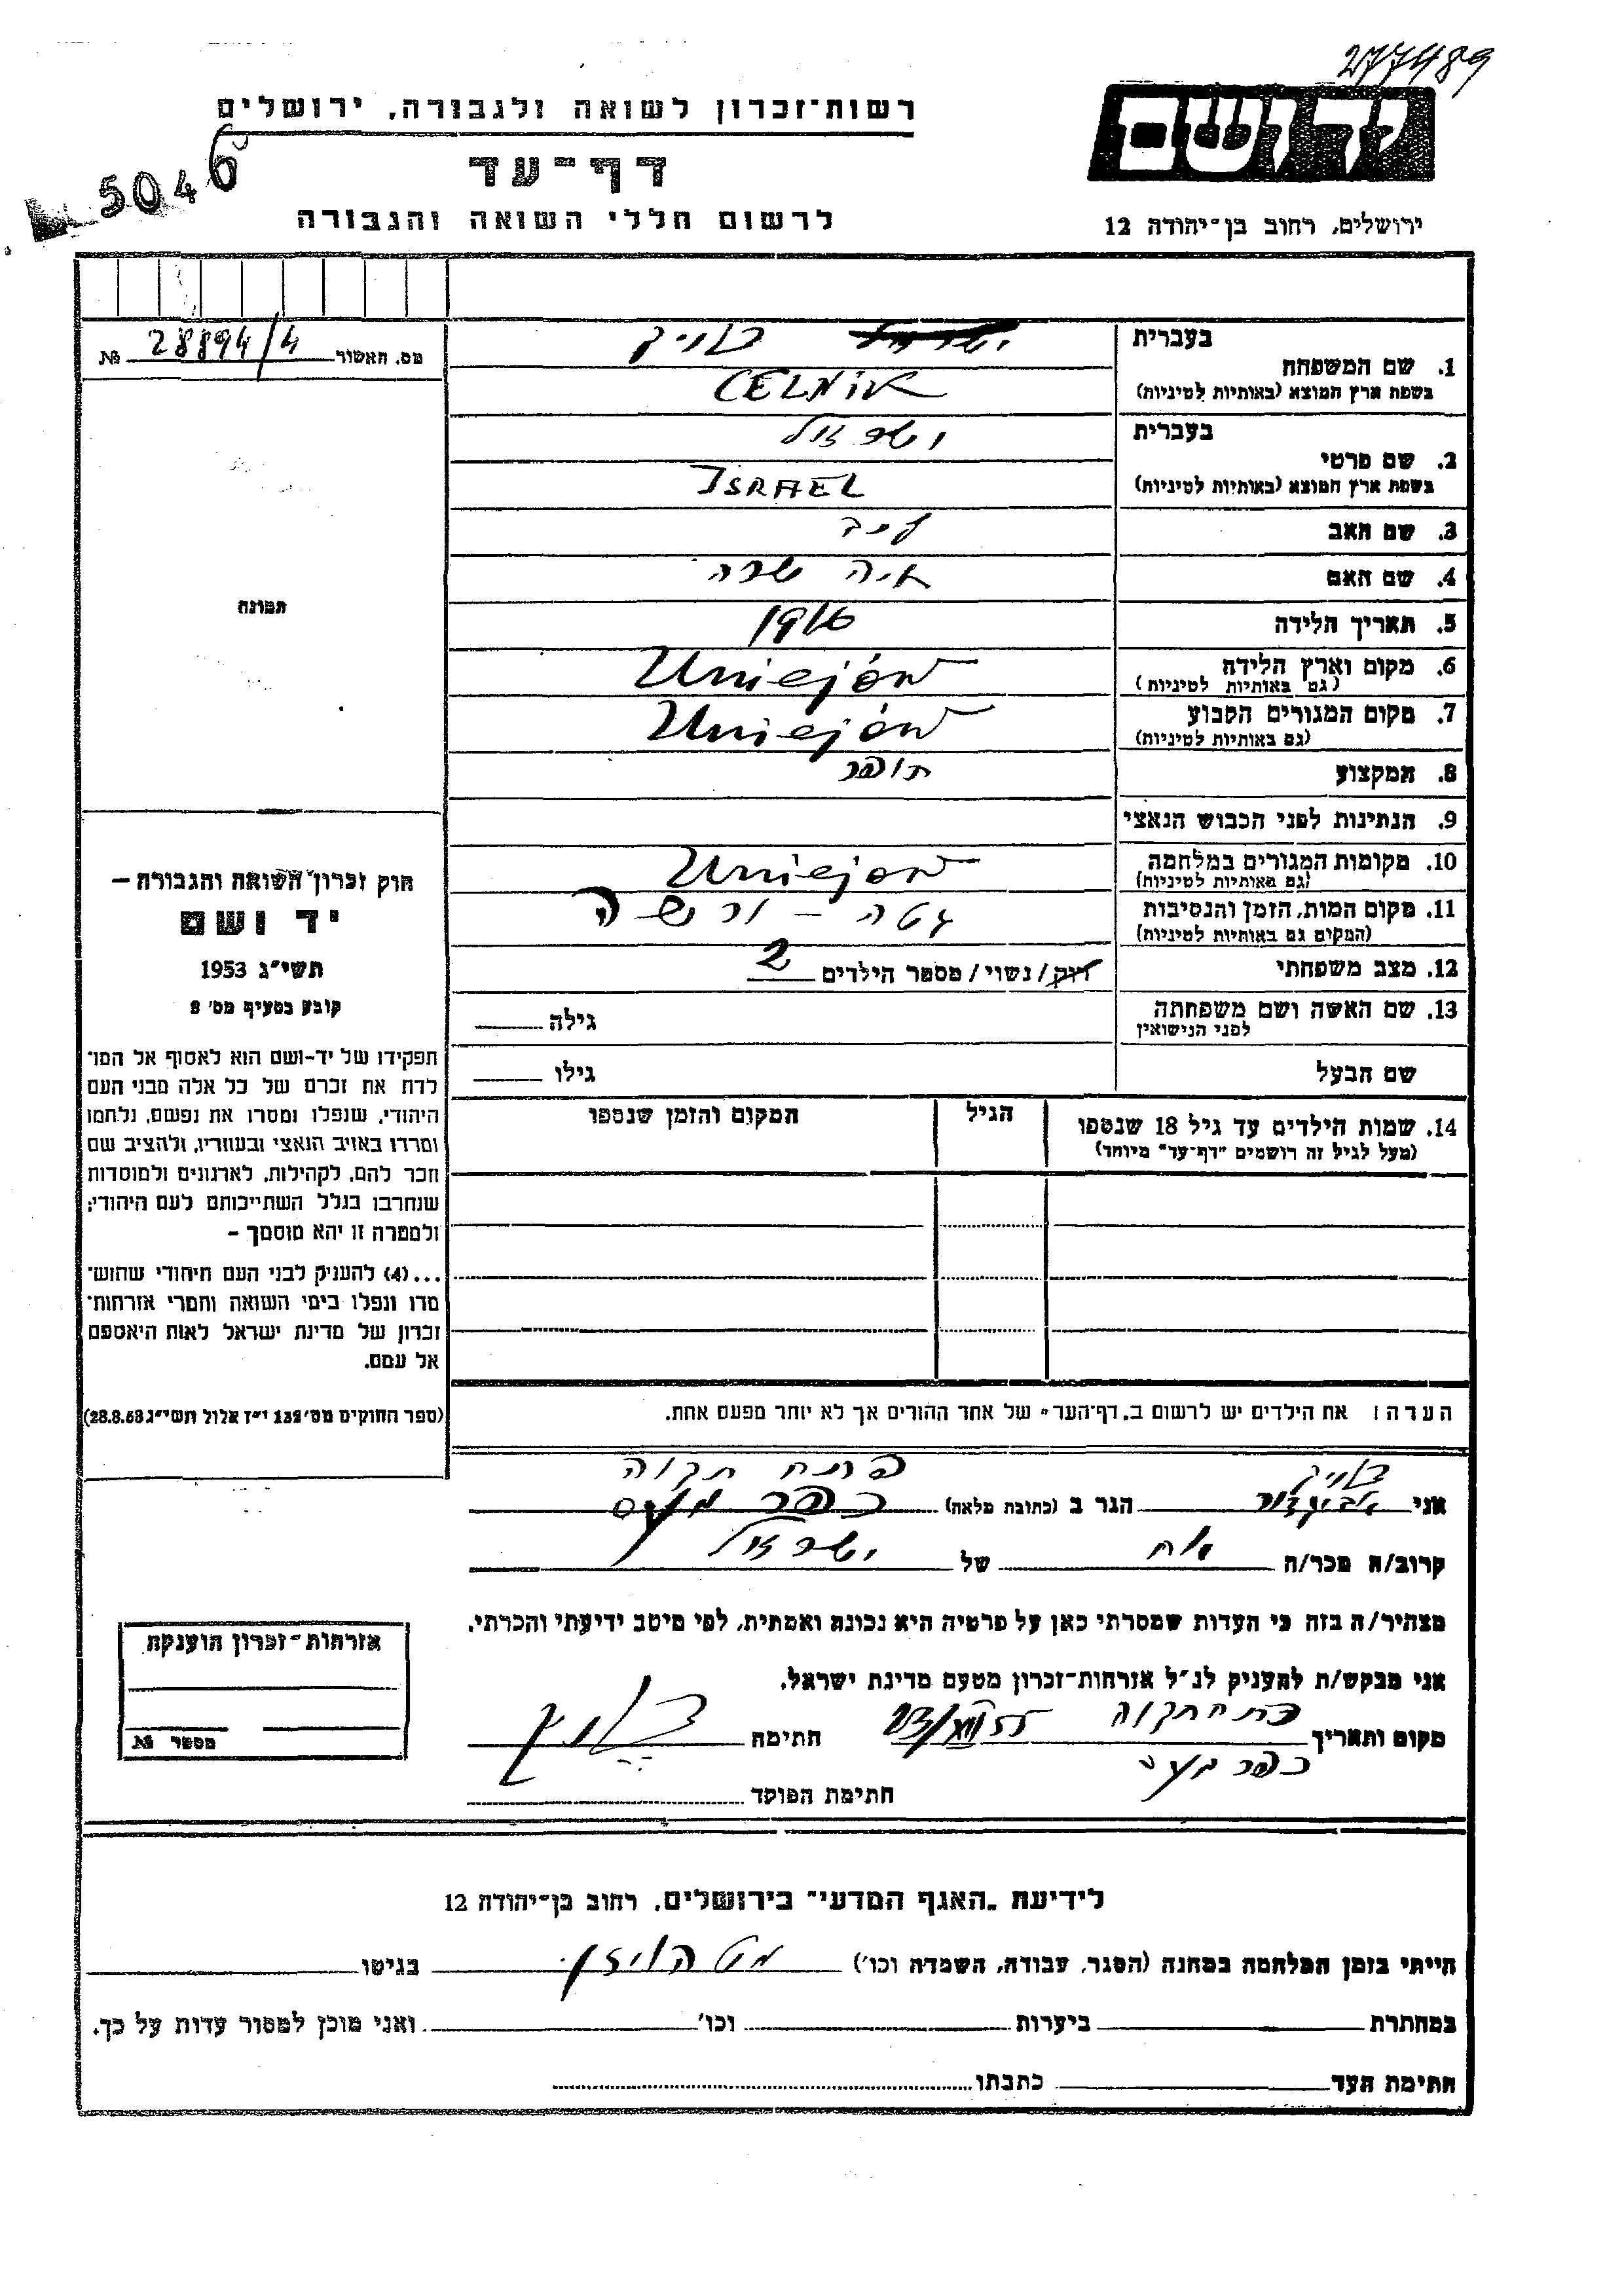 277489
רשות־זכרון לשואה ולגבורה, ירושלים
דף־עד
5046
לרשום חללי השואה והגבורה
ירושלים, רחוב בן־יהודה 12
בעברית
1. שם המשפחה
בשפת ארץ המוצא (באותיות לטיניות)
CELNIK
בעברית
ישראל
2. שם פרטי
בשפת ארץ המוצא (באותיות לטיניות)
ISRAEL
3. שם האב
4. שם האם
שרה
5. תאריך הלידה
1916
6. מקום וארץ הלידה
(גם באותיות לטיניות)
Uniejów
7. מקום המגורים הקבוע
(גם באותיות לטיניות)
Uniejów
8. המקצוע
תופר
9. הנתינות לפני הכבוש הנאצי
10. מקומות המגורים במלחמה
(גם באותיות לטיניות)
Uniejów
11. מקום המות, הזמן והנסיבות
(המקום גם באותיות לטיניות)
גטה – ורשה
12. מצב משפחתי
רוק/נשוי/מספר הילדים 2
13. שם האשה ושם משפחתה
לפני הנישואין
גילה
שם הבעל
גילו
14. שמות הילדים עד גיל 18 שנספו
(מעל לגיל זה רושמים "דף־עד" מיוחד)
הגיל
המקום והזמן שנספו
מס. האשור 28894/4 №
תמונה
חוק זכרון השואה והגבורה –
יד ושם
תשי"ג 1953
קובע בסעיף מס' 2
תפקידו של יד-ושם הוא לאסוף אל המו־
לדת את זכרם של כל אלה מבני העם
היהודי, שנפלו ומסרו את נפשם, נלחמו
ומרדו באויב הנאצי ובעוזריו, ולהציב שם
וזכר להם, לקהילות, לארגונים ולמוסדות
שנחרבו בגלל השתייכותם לעם היהודי;
ולמטרה זו יהא מוסמך –
...(4) להעניק לבני העם היהודי שהוש־
מדו ונפלו בימי השואה והמרי אזרחות־
זכרון של מדינת ישראל לאות היאספם
אל עמם.
(ספר החוקים מס' 132 י"ז אלול תשי"ג 28.8.53)
הערה: את הילדים יש לרשום ב„דף־העד" של אחד ההורים אך לא יותר מפעם אחת.
פתח תקוה
אני הגר ב (כתובת מלאה) כפר
קרוב/ה מכר/ה אח של ישראל
מצהיר/ה בזה כי העדות שמסרתי כאן על פרטיה היא נכונה ואמתית, לפי מיטב ידיעתי והכרתי.
אני מבקש/ת להעניק לנ"ל אזרחות־זכרון מטעם מדינת ישראל.
מקום ותאריך פתח תקוה 23/XII 55 חתימה
כפר
חתימת הפוקד
אזרחות־זכרון הוענקה
מספר №
לידיעת „האגף המדעי" בירושלים, רחוב בן־יהודה 12
הייתי בזמן המלחמה במחנה (הסגר, עבודה, השמדה וכו') בגיטו
במחתרת ביערות וכו' ואני מוכן למסור עדות על כך.
חתימת העד כתבתו